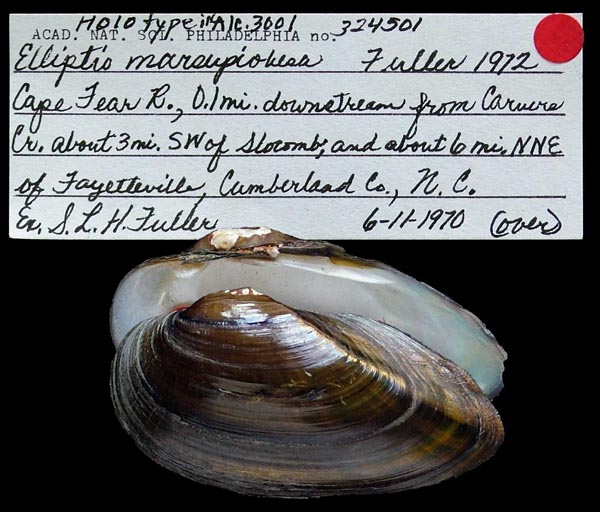 Holotype in Alc. 3001
ACAD. NAT. SCI. PHILADELPHIA no. 324501
Elliptio marsupiobesa Fuller 1972
Cape Fear R., 0.1 mi. downstream from Carvers
Cr. about 3 mi. SW of Slocomb, and about 6 mi. NNE
of Fayetteville, Cumberland Co., N. C.
Ex. S. L. H. Fuller 6-11-1970 (over)